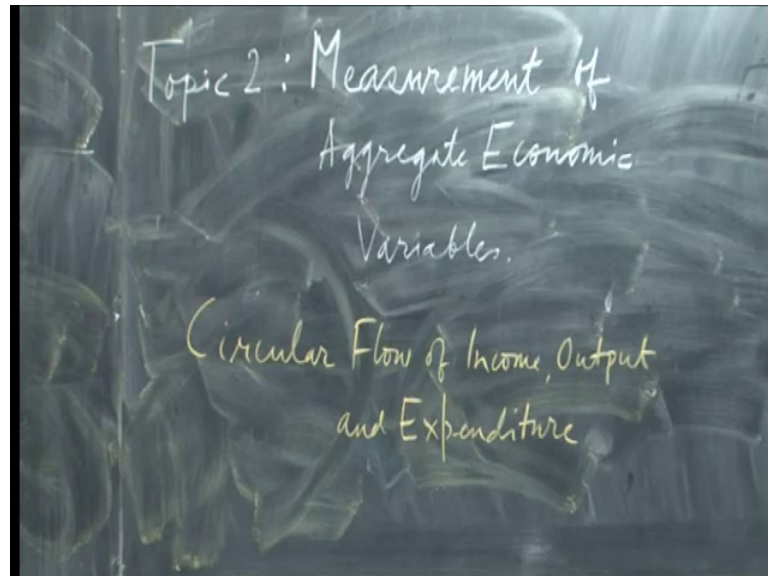 Topic 2 : Measurement of
Aggregate Economic
Variables.
Circular Flow of Income, Output
and Expenditure